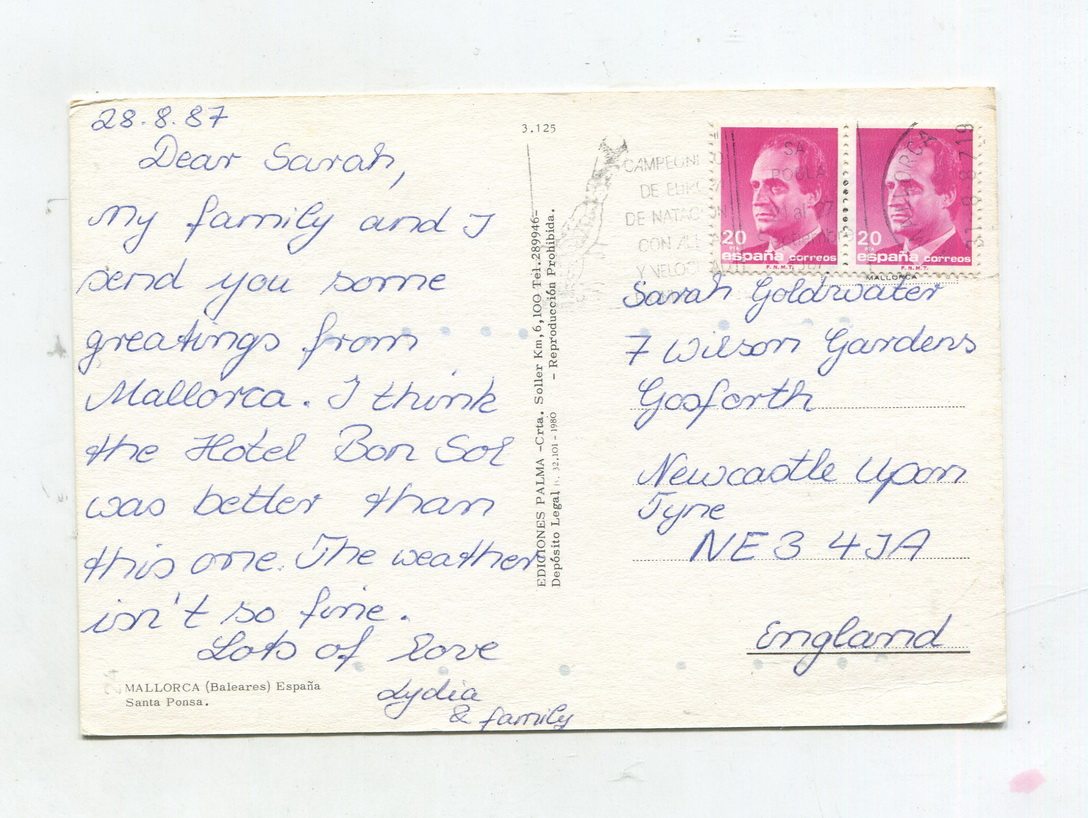 28.8.87
Dear Sarah,
my family and I
send you some
greatings from
Mallorca. I think
the Hotel Bon Sol
was better than
this one. The weather
isn't so fine.
Lots of love
Lydia
& family
MALLORCA (Baleares) España
Santa Ponsa.
3.125
EDICIONES PALMA -Crta. Soller Km,6,100 Tel.289946-
Depósito Legal 32.101 - 1980 - Reproducción Prohibida.
CAMPEON
DE
DE NATAC
CON
Y VELOC
20
españa correos
F.N.M.T.
20
españa correos
F.N.M.T.
MALLORCA
Sarah Goldwater
7 Wilson Gardens
Gosforth
Newcastle Upon
Tyne
NE3 4JA
England